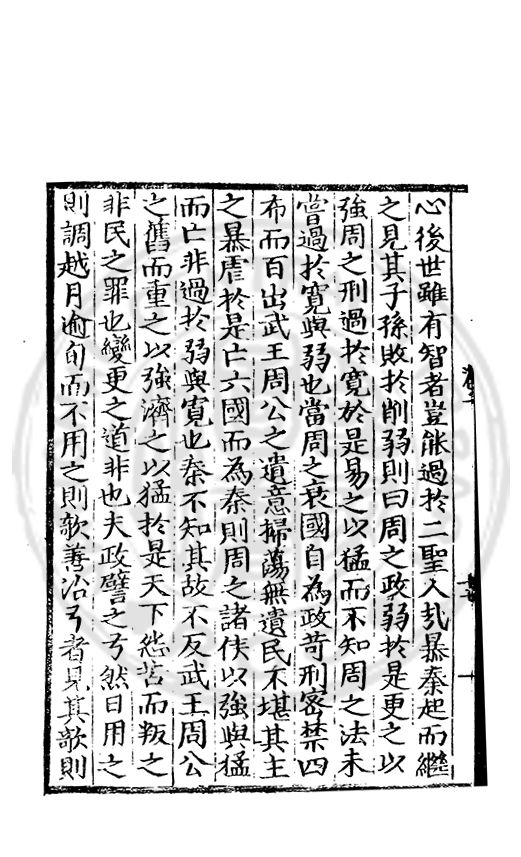 心後世雖有智者豈能過於二聖人㢤暴秦起而繼
之見其子孫敗於削弱則曰周之政弱於是更之以
強周之刑過於寬於是易之以猛而不知周之法未
嘗過於寬與弱也當周之衰國自為政苛刑密禁四
布而百出武王周公之遺意掃蕩無遺民不堪其主
之暴虐於是亡六國而為秦則周之諸侯以強與猛
而亡非過於弱與寬也秦不知其故不反武王周公
之舊而重之以強濟之以猛於是天下怨苦而叛之
非民之罪也變更之道非也夫政譬之弓然日用之
則調越月逾旬而不用之則欹善治弓者見其欹則